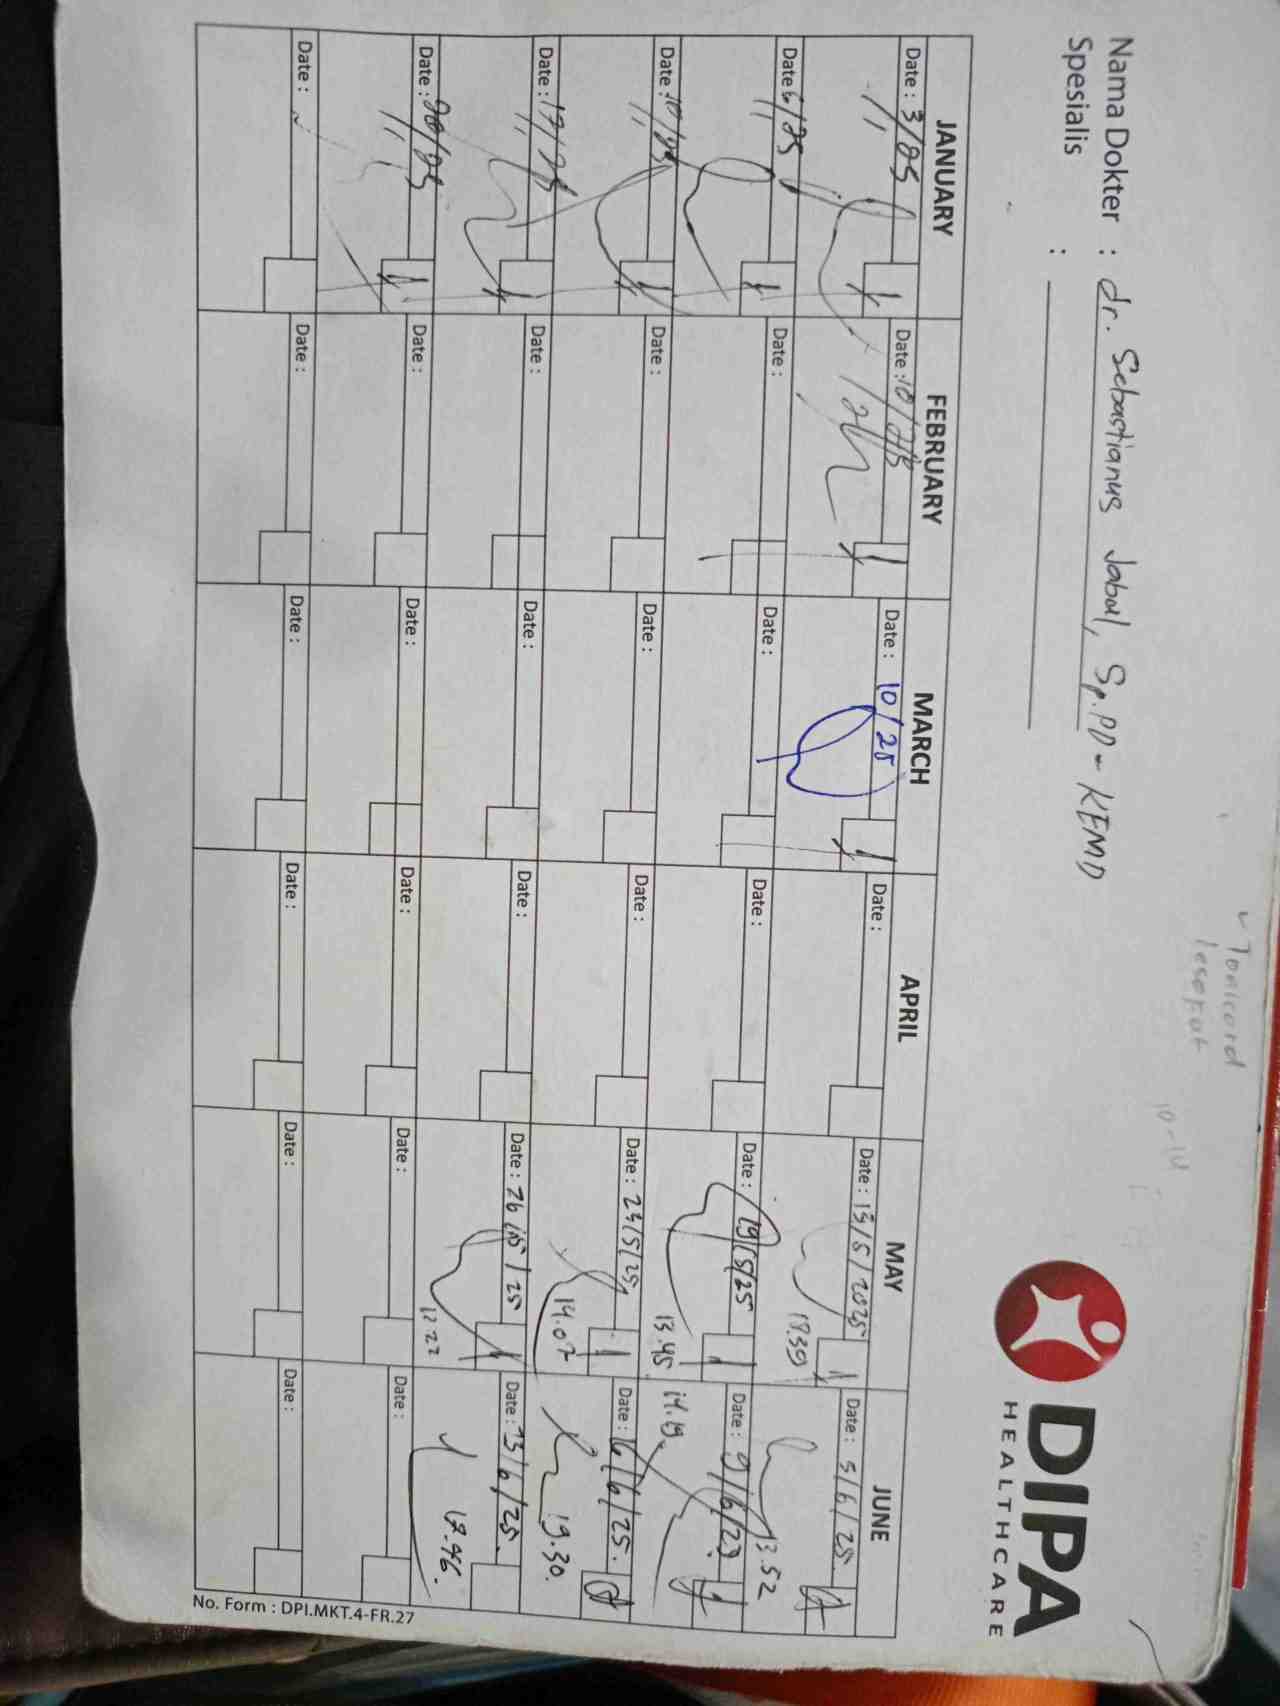 Nama Dokter : dr. Sebastianus Jabul, Sp.PD - KEMD
Spesialis :
DIPA
HEALTHCARE
JANUARY FEBRUARY MARCH APRIL MAY JUNE
Date : 3/25 Date : 10/25 Date : 10/25 Date : Date : 13/5/2025 Date : 5/6/25
18.39 13.52
Date : 6/25 Date : Date : Date : Date : 19/5/25 Date : 9/6/25
13.45 14.19
Date : 10/25 Date : Date : Date : Date : 23/5/25 Date : 6/6/25
14.07 19.30
Date : 17/25 Date : Date : Date : Date : 26/5/25 Date : 13/6/25
17.27 17.46
Date : 20/25 Date : Date : Date : Date : Date :
Date : Date : Date : Date : Date : Date :
No. Form : DPI.MKT.4-FR.27